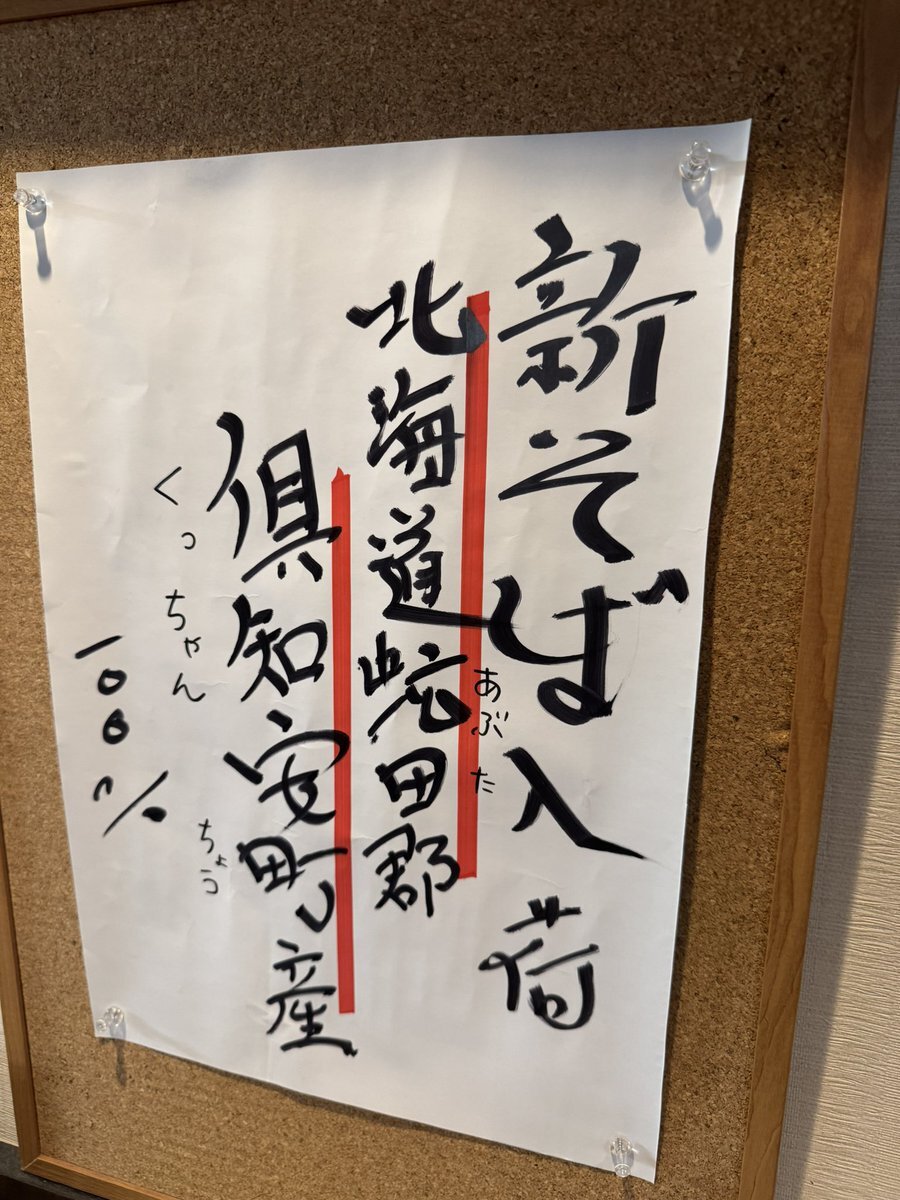 新そば入荷
北海道蛇田郡
あぶた
倶知安町産
くっちゃん
ちょう
100%